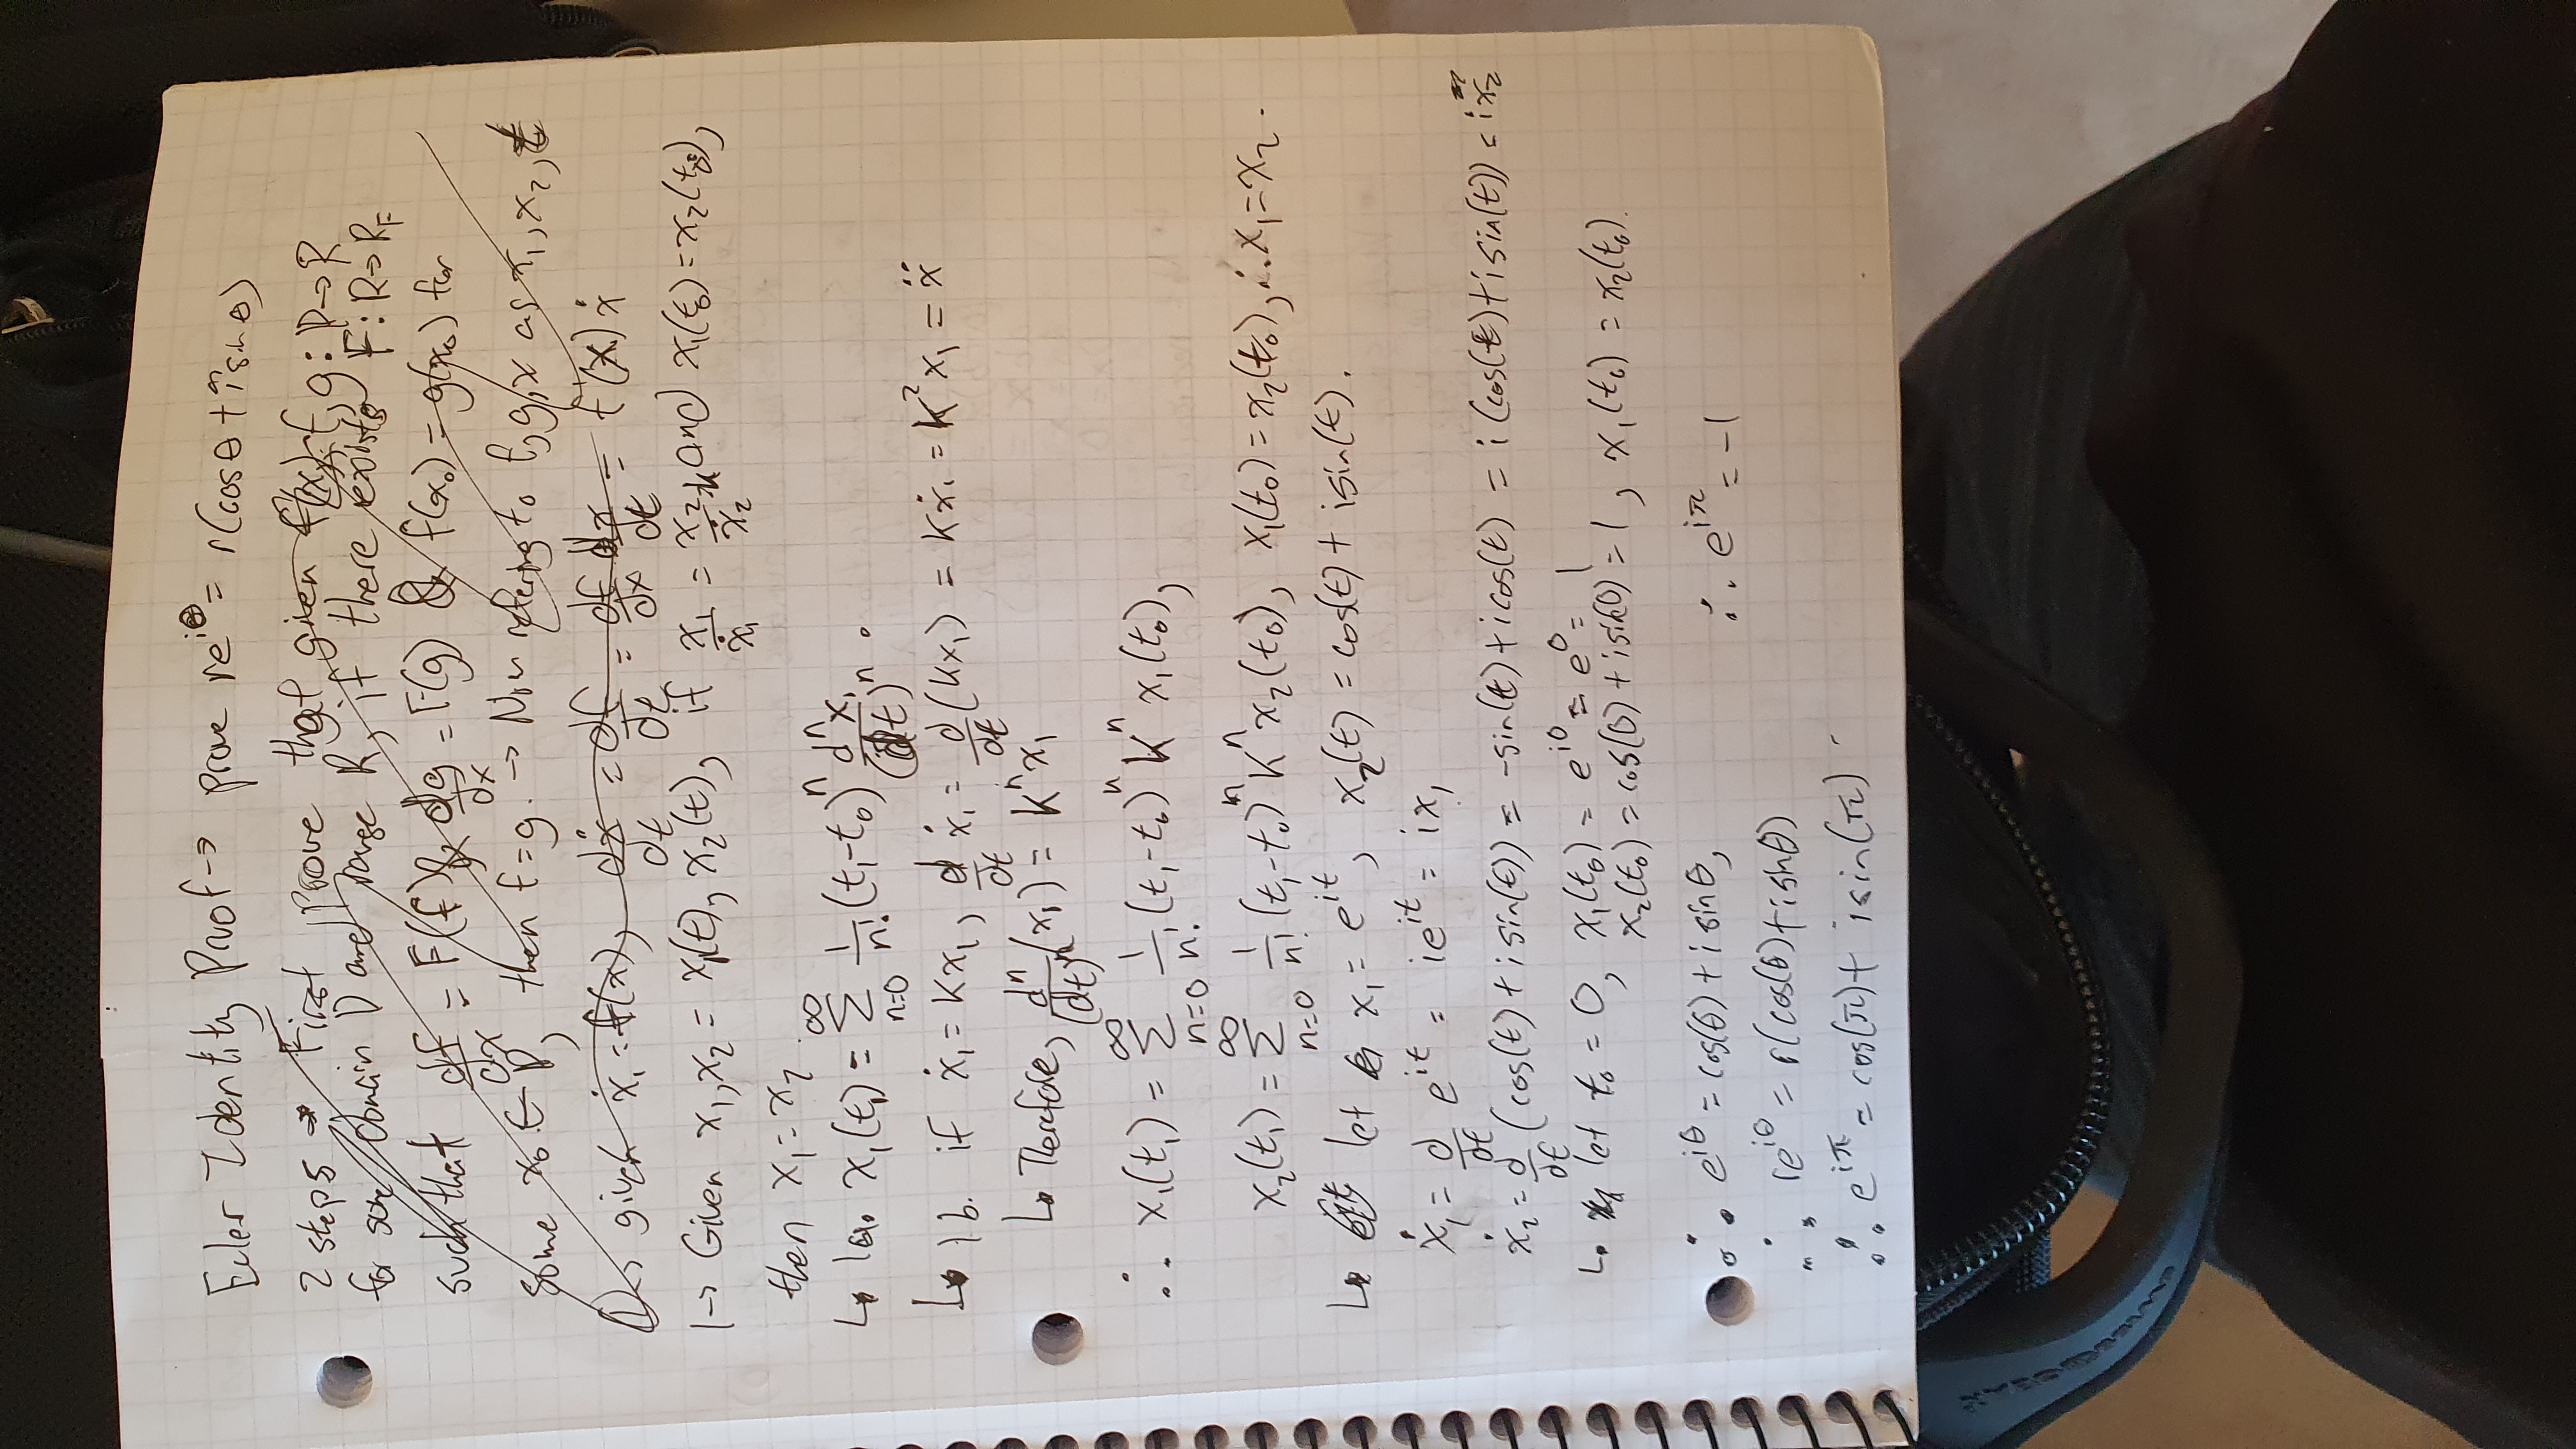 Euler Identity Proof → prove re^{iθ} = r(cosθ + i sin θ)
2 steps → First prove that given f(x), f, g : D→R
for some domain D and range R, if there exists F: R→R_F
such that df/dx = F(f) & dg/dx = F(g) & f(x₀) = g(x₀) for
some x₀ ∈ D, then f = g. → Now refering to f, g, x as x₁, x₂, t
1→ given ẋ₁ = f(x), dẋ/dt = df/dt = df/dx dx/dt = f'(x) ẋ
1→ Given x₁, x₂ = x₁(t), x₂(t), if x₁/ẋ₁ = x₂/ẋ₂ and x₁(t₀) = x₂(t₀),
then x₁ = x₂.
↳ 1a. x₁(t₁) = ∑_{n=0}^{∞} 1/n! (t₁-t₀)ⁿ dⁿx₁/(dt)ⁿ.
↳ 1b. if ẋ₁ = Kx₁, d/dt ẋ₁ = d/dt (Kx₁) = Kẋ₁ = K²x₁ = ẍ
↳ Therefore, dⁿ/(dt)ⁿ (x₁) = Kⁿx₁
∴ x₁(t₁) = ∑_{n=0}^{∞} 1/n! (t₁-t₀)ⁿ Kⁿ x₁(t₀),
x₂(t₁) = ∑_{n=0}^{∞} 1/n! (t₁-t₀)ⁿ Kⁿ x₂(t₀), x₁(t₀) = x₂(t₀), ∴ x₁ = x₂.
↳ let x₁ = e^{it}, x₂(t) = cos(t) + isin(t).
ẋ₁ = d/dt e^{it} = ie^{it} = ix₁
ẋ₂ = d/dt (cos(t) + i sin(t)) = -sin(t) + icos(t) = i (cos(t) + i sin(t)) = ix₂
↳ let t₀ = 0, x₁(t₀) = e^{i0} = e⁰ = 1
x₂(t₀) = cos(0) + isin(0) = 1, x₁(t₀) = x₂(t₀).
∴ e^{iθ} = cos(θ) + i sinθ, ∴ e^{iπ} = -1
∴ re^{iθ} = r(cos(θ) + isinθ)
∴ e^{iπ} = cos(π) + isin(π)